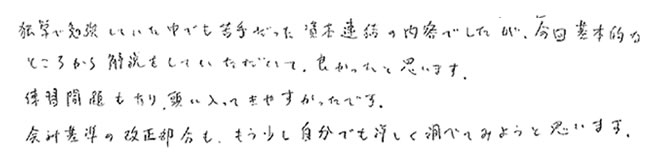 独学で勉強していた中でも苦手だった資本連結の内容でしたが、今回基本的な
ところから解説をしていただいて、良かったと思います。
練習問題もあり、頭に入ってきやすかったです。
会計基準の改正部分も、もう少し自分でも詳しく調べてみようと思います。